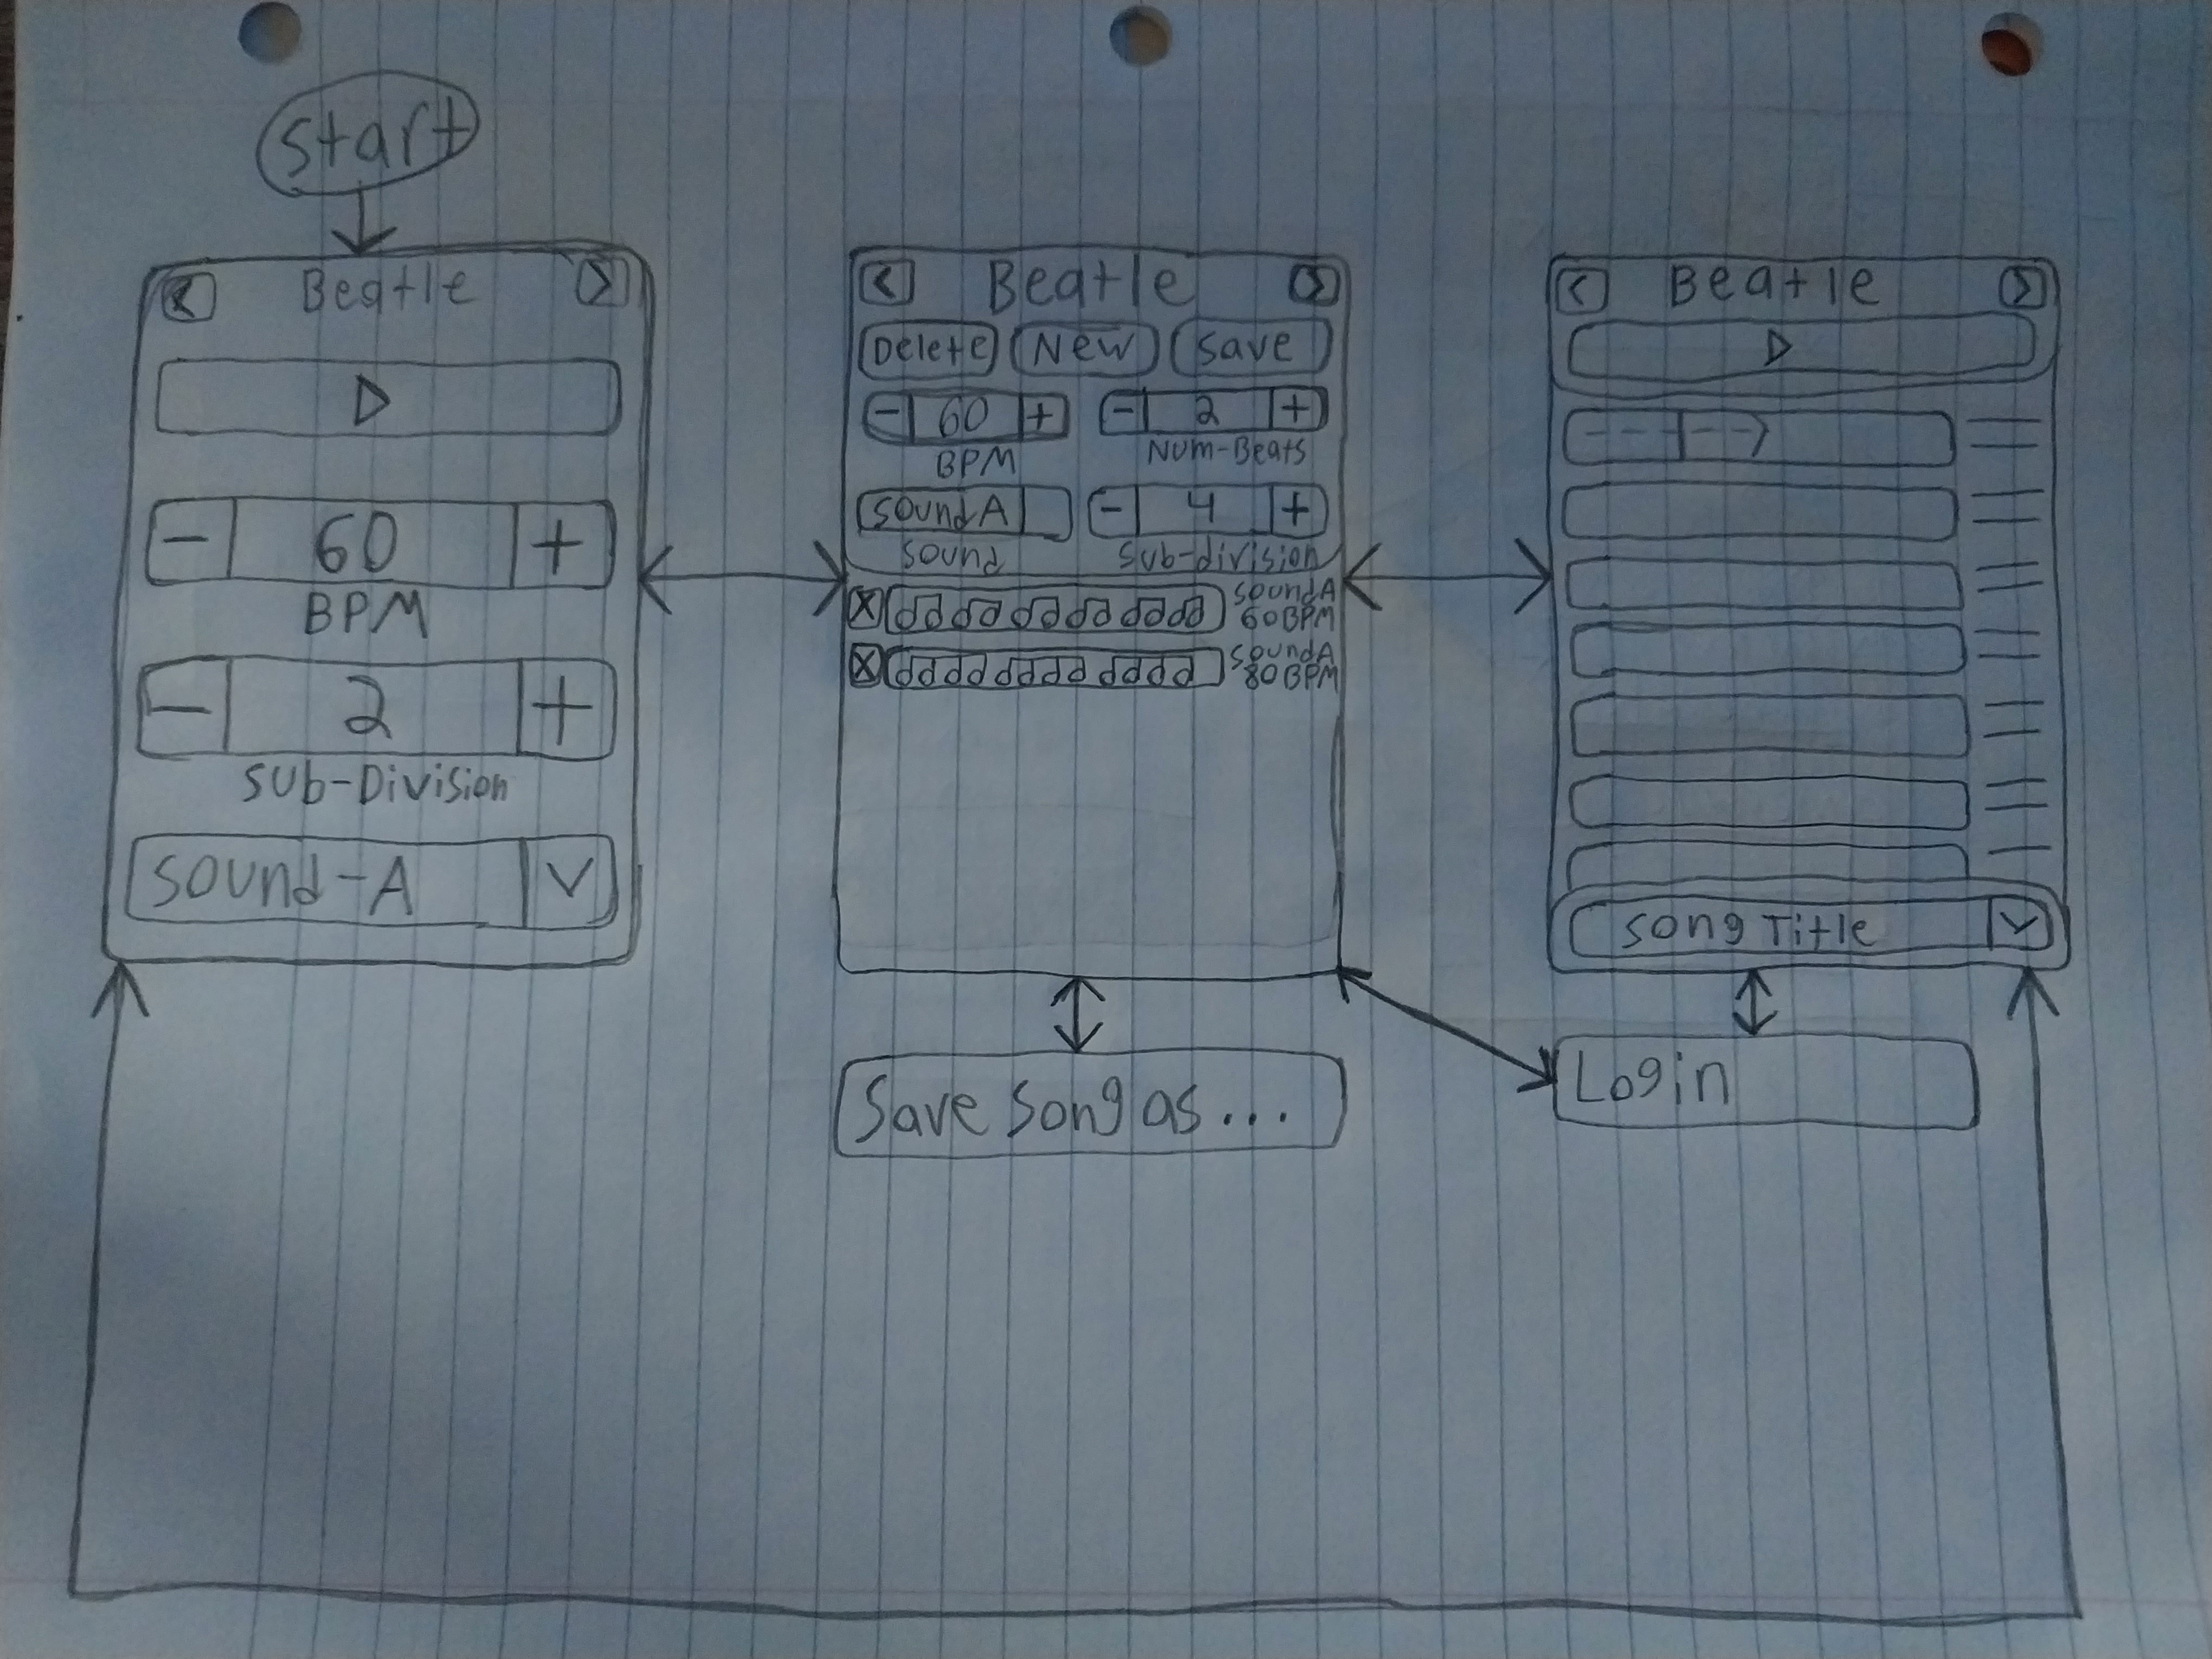 Start
Beatle
- 60 +
BPM
- 2 +
Sub-Division
Sound-A
Beatle
Delete New Save
- 60 + - 2 +
BPM Num-Beats
Sound A - 4 +
Sound Sub-division
X Sound A
60BPM
X Sound A
80BPM
Save Song as...
Beatle
Song Title
Login